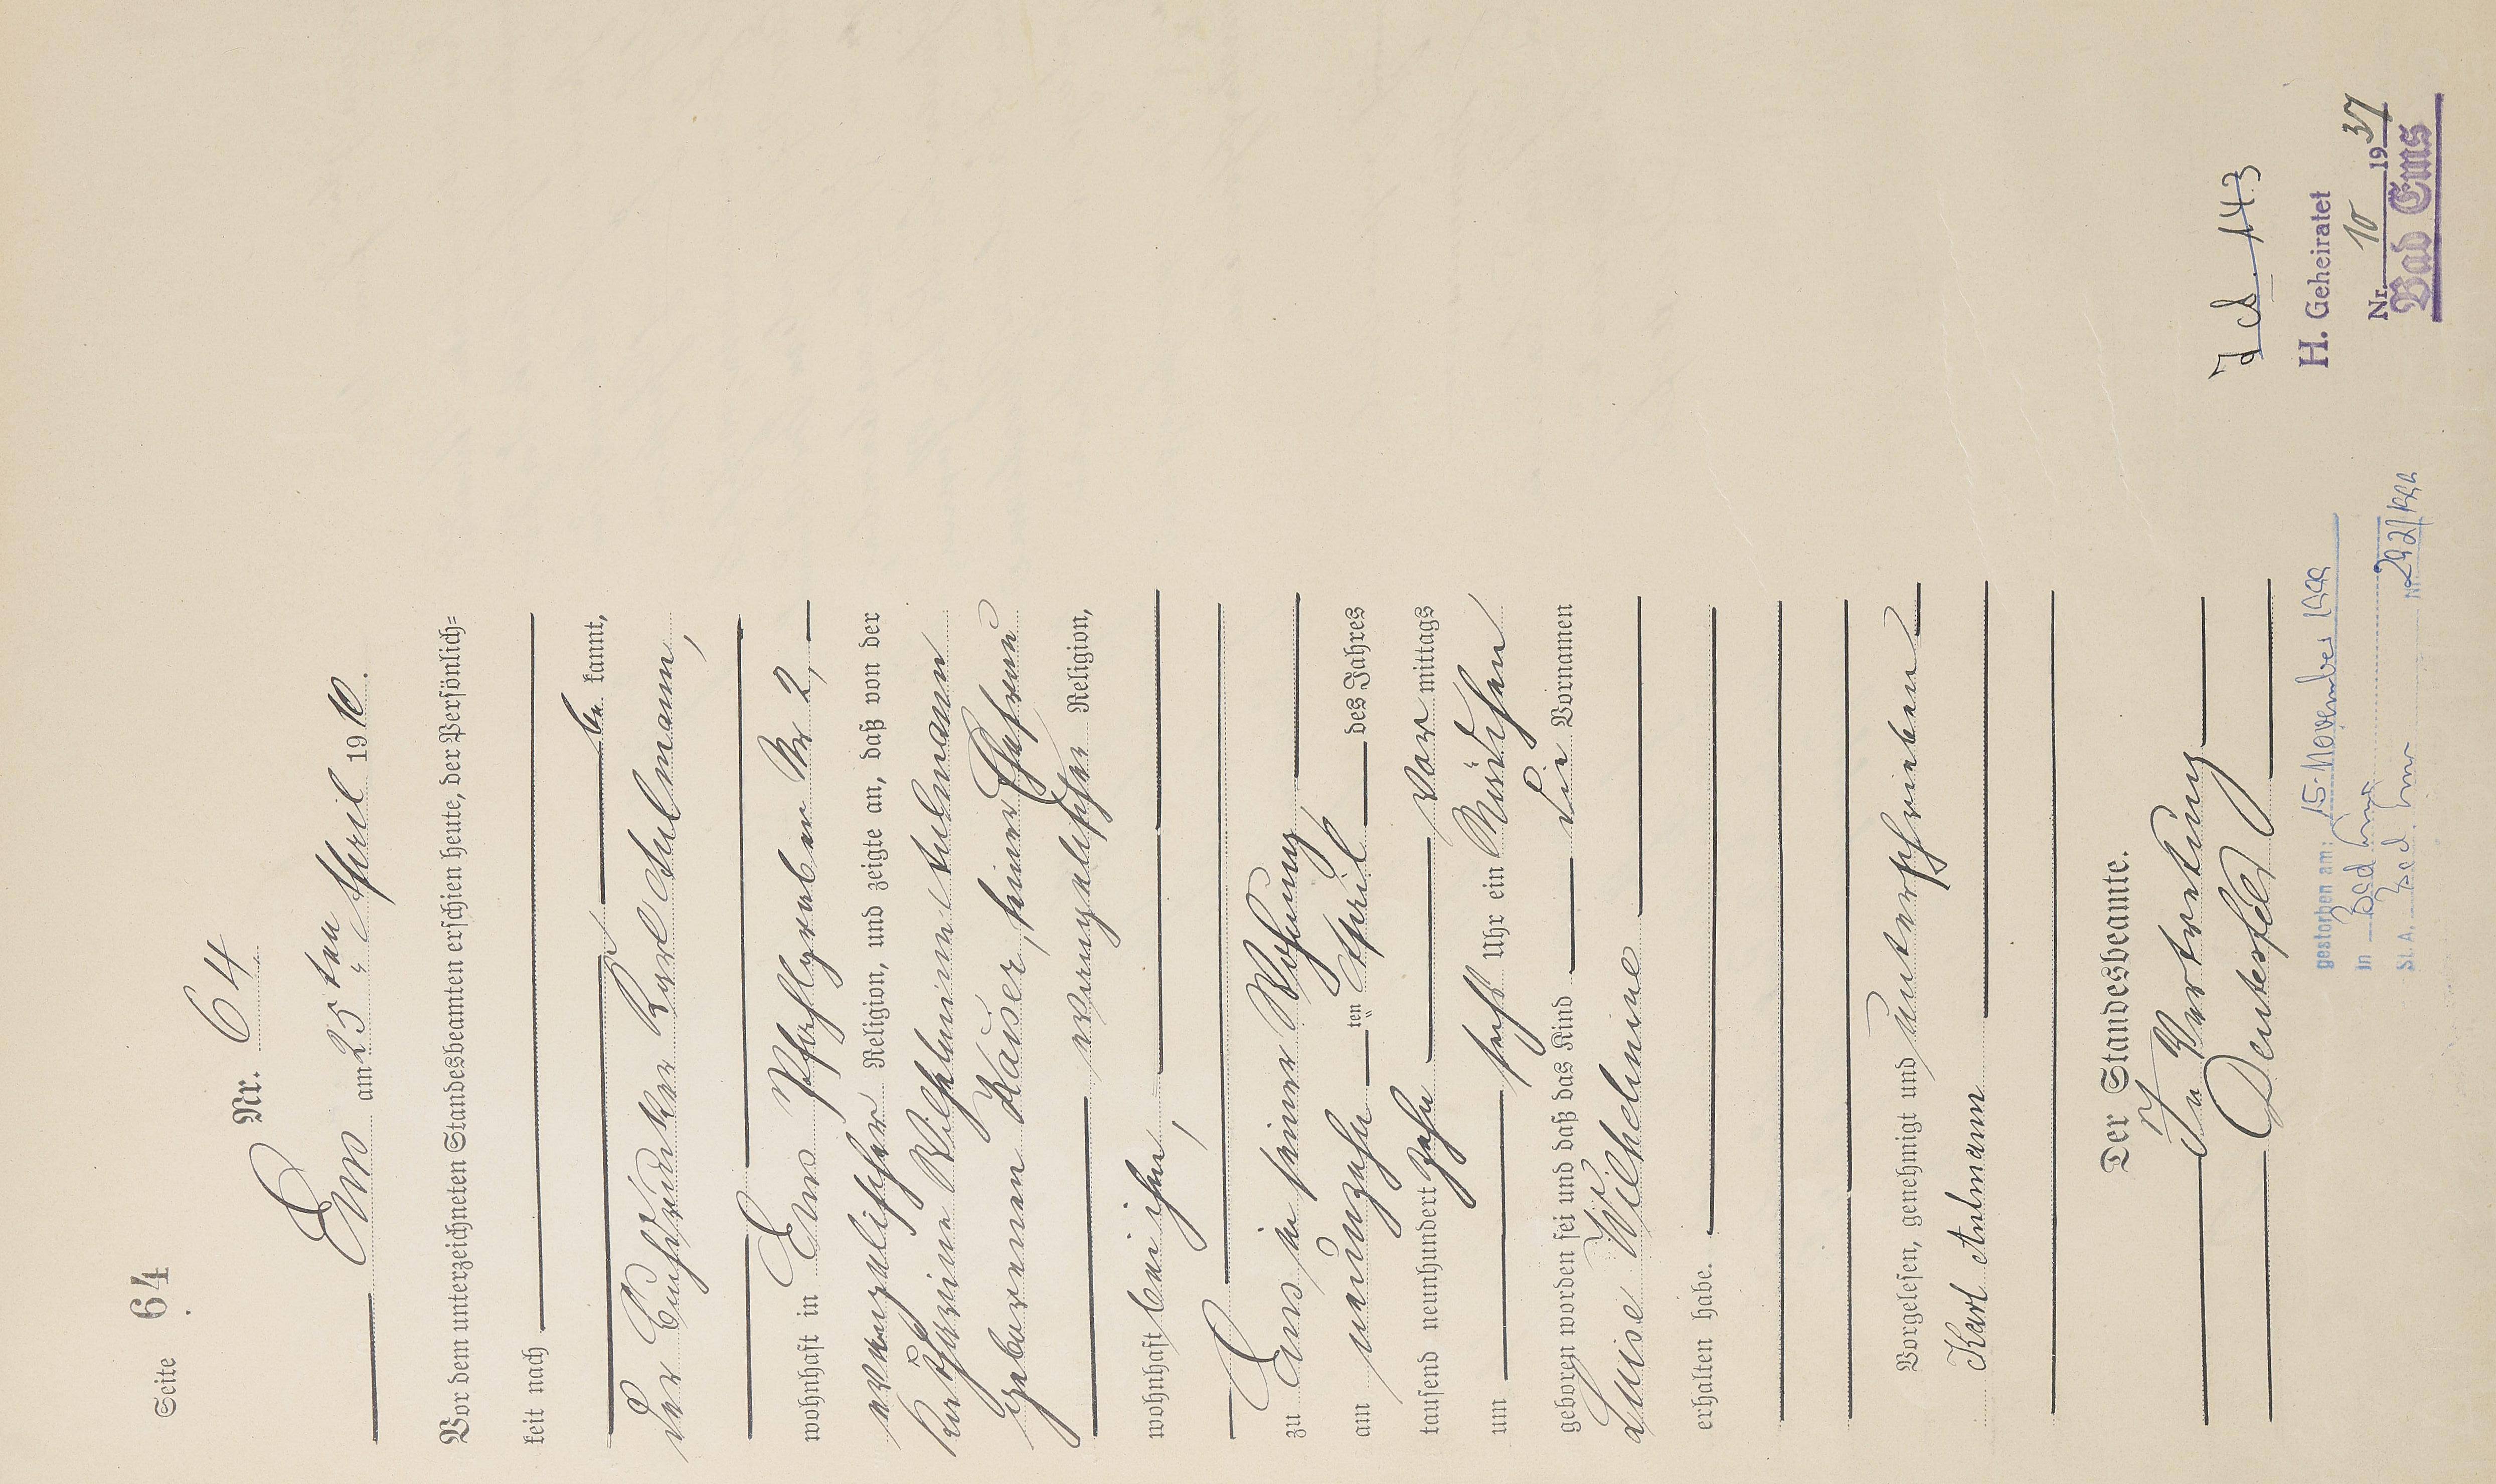 Seite 64
Nr. 64
Ems am 25 ten April 1910.
Vor dem unterzeichneten Standesbeamten erschien heute, der Persönlich-
keit nach
be kannt,
der Buchdrucker Karl Aulmann,
wohnhaft in Ems Pfahlgraben Nr 2,
evangelischer Religion, und zeigte an, daß von der
Wilhelmine Aulmann
geborenen Kaiser, seiner Ehefrau
evangelischer Religion,
wohnhaft bei ihm,
zu Ems in seiner Wohnung
am neunzehn ten April des Jahres
tausend neunhundert zehn vor mittags
um sechs Uhr ein Mädchen
geboren worden sei und daß das Kind die Vornamen
Luise Wilhelmine
erhalten habe.
Vorgelesen, genehmigt und unterschrieben
Karl Aulmann
Der Standesbeamte.
In Vertretung
gestorben am: 15. November
in Bad Ems
St. A. Bad Ems Nr.
H. Geheiratet
Nr. 10 1937
Bad Ems